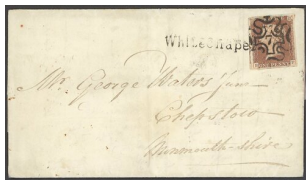 WhiteChapel
7
Mr. George Waters Junr
Chepstow
Monmouth-shire